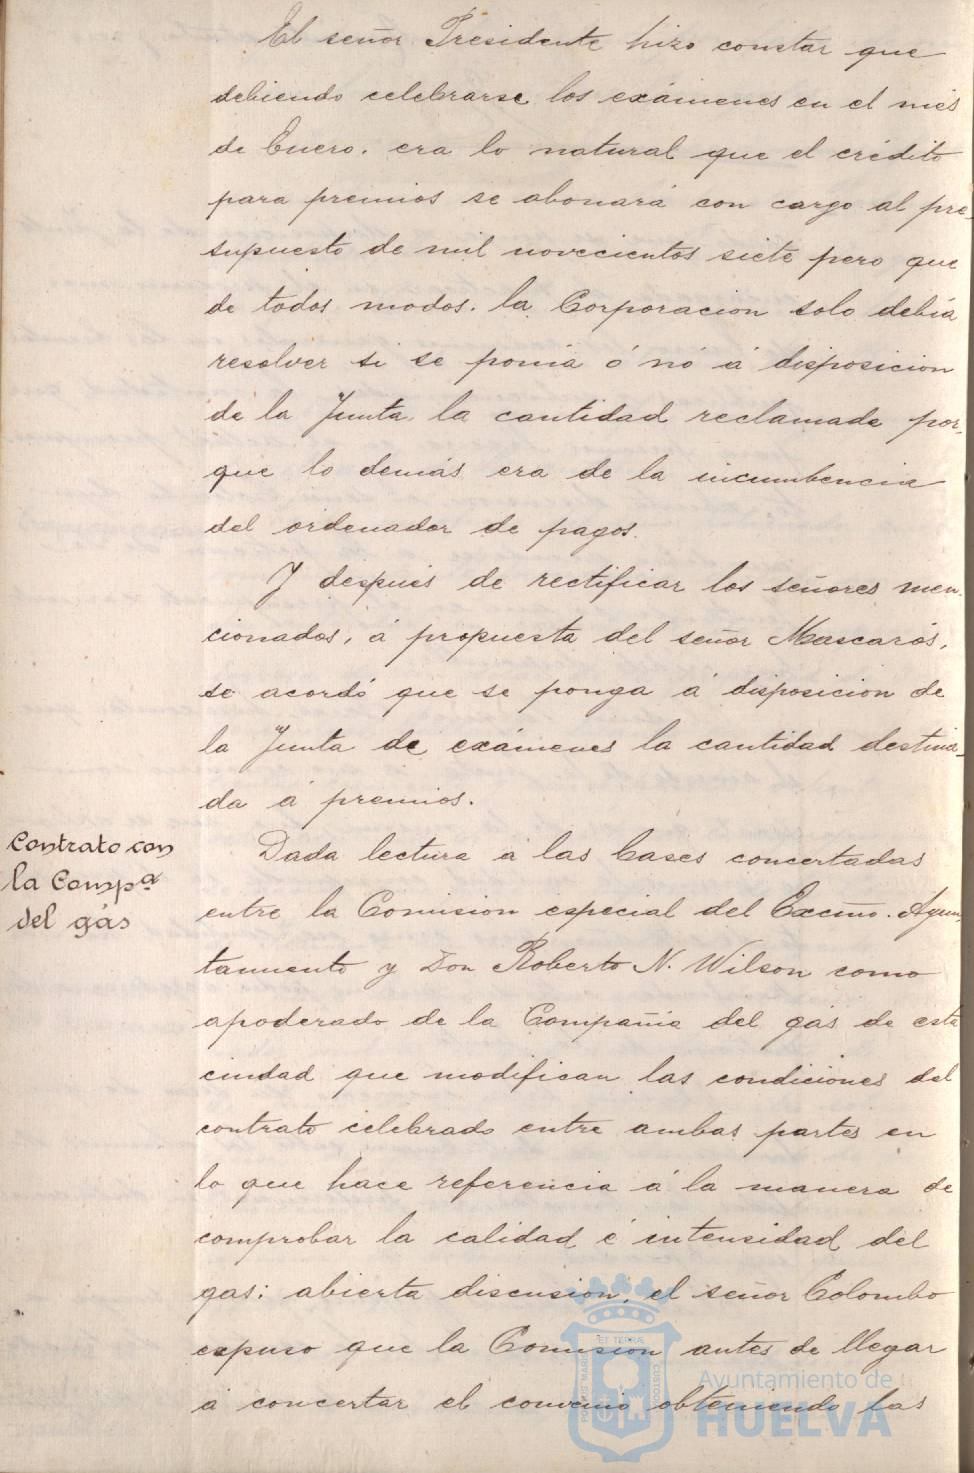 El señor Presidente hizo constar que
debiendo celebrarse los exámenes en el més
de Enero. era lo natural que el crédito
para premios se abonará con cargo al pre-
supuesto de mil novecientos siete pero que
de todos modos. la Corporacion solo debia
resolver si se ponia ó nó á disposicion
de la Junta, la cantidad reclamada por-
que lo demás era de la incumbencia
del ordenador de pagos.
Y después de rectificar los señores men-
cionados, á propuesta del señor Mascarós,
se acordó que se ponga á disposicion de
la Junta de exámenes la cantidad destina-
da á premios.
Contrato con
la Compª
del gás
Dada lectura á las bases concertadas
entre la Comision especial del Excmo. Ayun-
tamiento y Don Roberto N. Wilson como
apoderado de la Compañia del gás de esta
ciudad que modifican las condiciones del
contrato celebrado entre ambas partes en
lo que hace referencia á la manera de
comprobar la calidad é intensidad del
gas: abierta discusion, el señor Colombo
expuso que la Comision antes de llegar
á concertar el convenio obteniendo las
PORTUS MARIS ET TERRÆ CUSTODIA
Ayuntamiento de
HUELVA